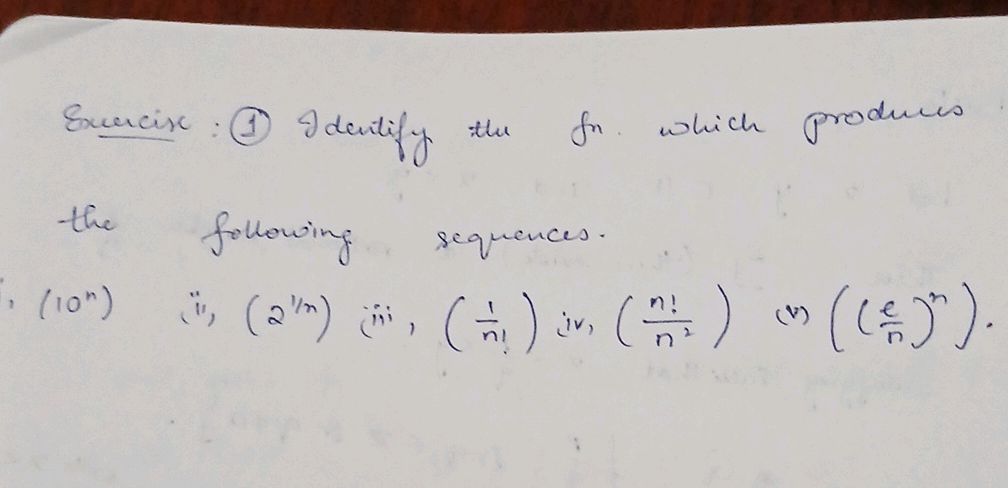 Exercise : ① Identify the fn. which produces
the following sequences.
i, (10ⁿ) ii, (2^{1/n}) iii, (1/n!) iv, (n!/n²) (v) ((e/n)ⁿ).